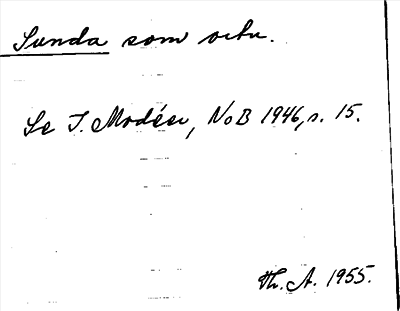 Sunda som ortn.
Se I. Modéer, NoB 1946, s. 15.
Th. A. 1955.